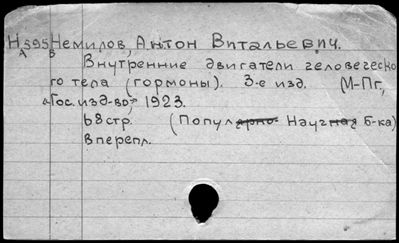 Н595 Немилов, Антон Витальевич.
А В
Внутренние двигатели человеческо-
го тела (гормоны). 3-е изд. М-Пг,
"Гос. изд-во", 1923.
68 стр. (Популярно Научная б-ка)
В перепл.